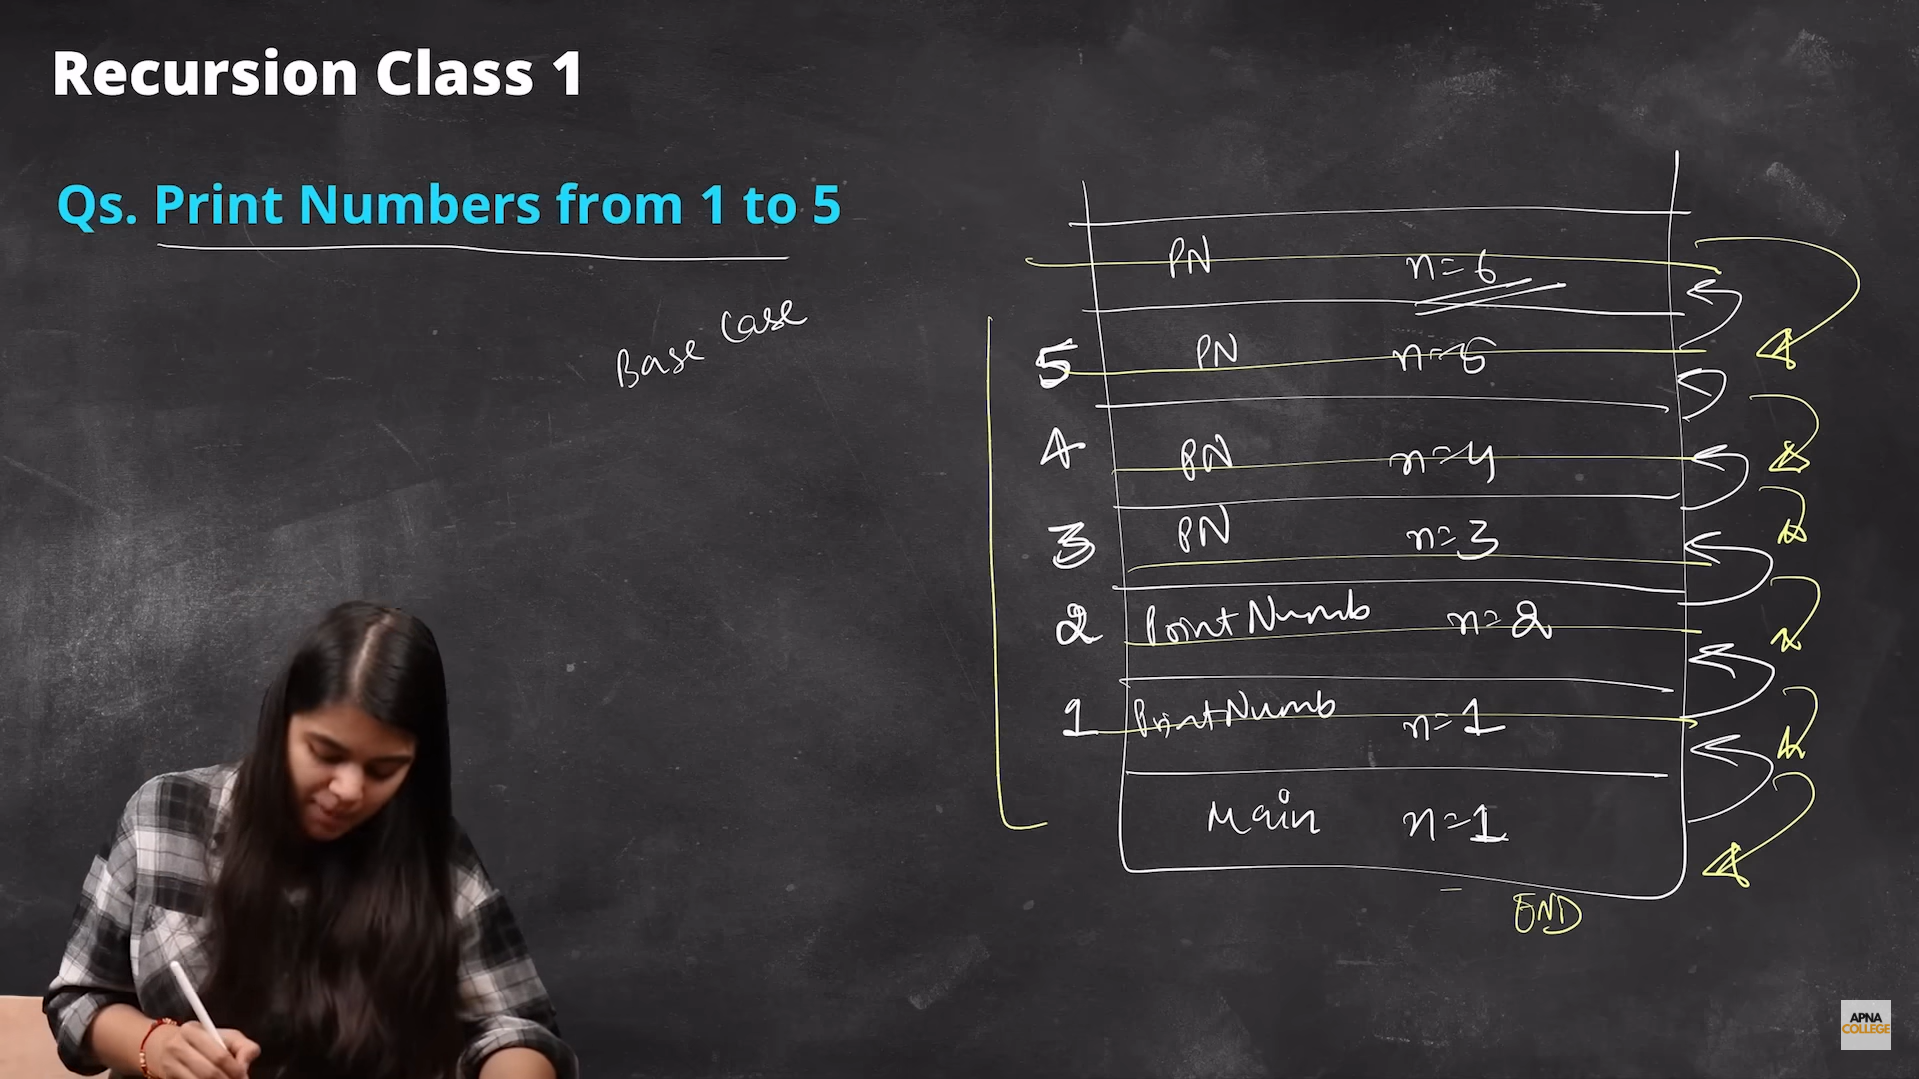 Recursion Class 1
Qs. Print Numbers from 1 to 5
Base Case
PN n=6
5 PN n=5
4 PN n=4
3 PN n=3
2 PrintNumb n=2
1 PrintNumb n=1
Main n=1
END
APNA
COLLEGE